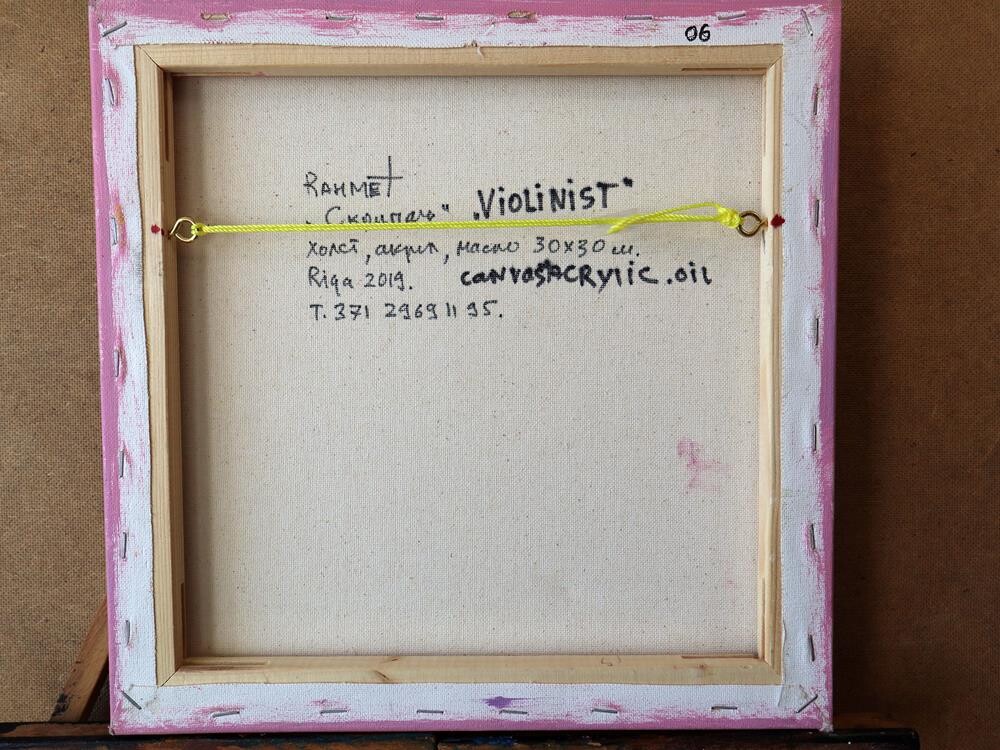 06
RAHMET
„Скрипач" „ViOLiNiST"
холст, акрил, масло 30x30 м.
Riga 2019. CANVAS ACRYLIC. Oil
T. 371 2969 11 95.